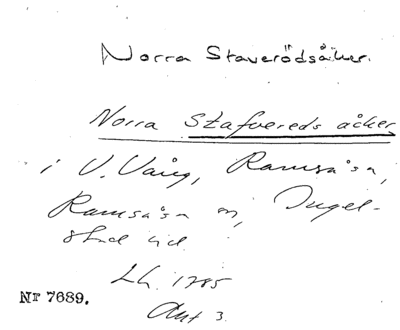 Norra Staverödsåker.
Norra Stafvereds åcker,
i V. Vång, Ramsåsa,
Ramsåsa sn, Ingel-
stad hd.
Lh. 1785
Akt 3.
Nr 7689.